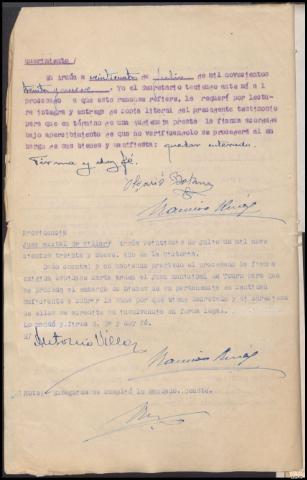 Requerimiento /
En Arzúa a veinticuatro de Julio de mil novecientos
treinta y nueve. Yo el Secretario teniendo ante mi a l
procesado a que este ramose refiere, le requerí por lectu-
ra integra y entrega de copia literal del precedente testimonio
para que en término de una audiencia preste la fianza acordada
bajo apercibimiento de que no verificandolo se procederá al em
bargo de sus bienes y manifiesta: quedar enterado.
Firma y doy fé.
Ramiro
Providencia
Juez accidental Sr Villar/ Arzúa veintiseis de julio de mil nove
cientos treinta y nueve, año de la Victoria.
Dada cuenta; y no habiendo prestado el procesado la fianza
exigida librese carta orden al Juez municipal de Touro para que
se proceda el embargo de bienes de su pertenencia en cantidad
suficiente a cubrir la suma por que viene decretado y si careciese
de ellos se acredite su insolvencia en forma legal.
Lo mandó y firma S. Sª y doy fé
E/
Antonio Villar
Ramiro
Nota:- Enseguida se cumplió lo mandado. Doyfé.